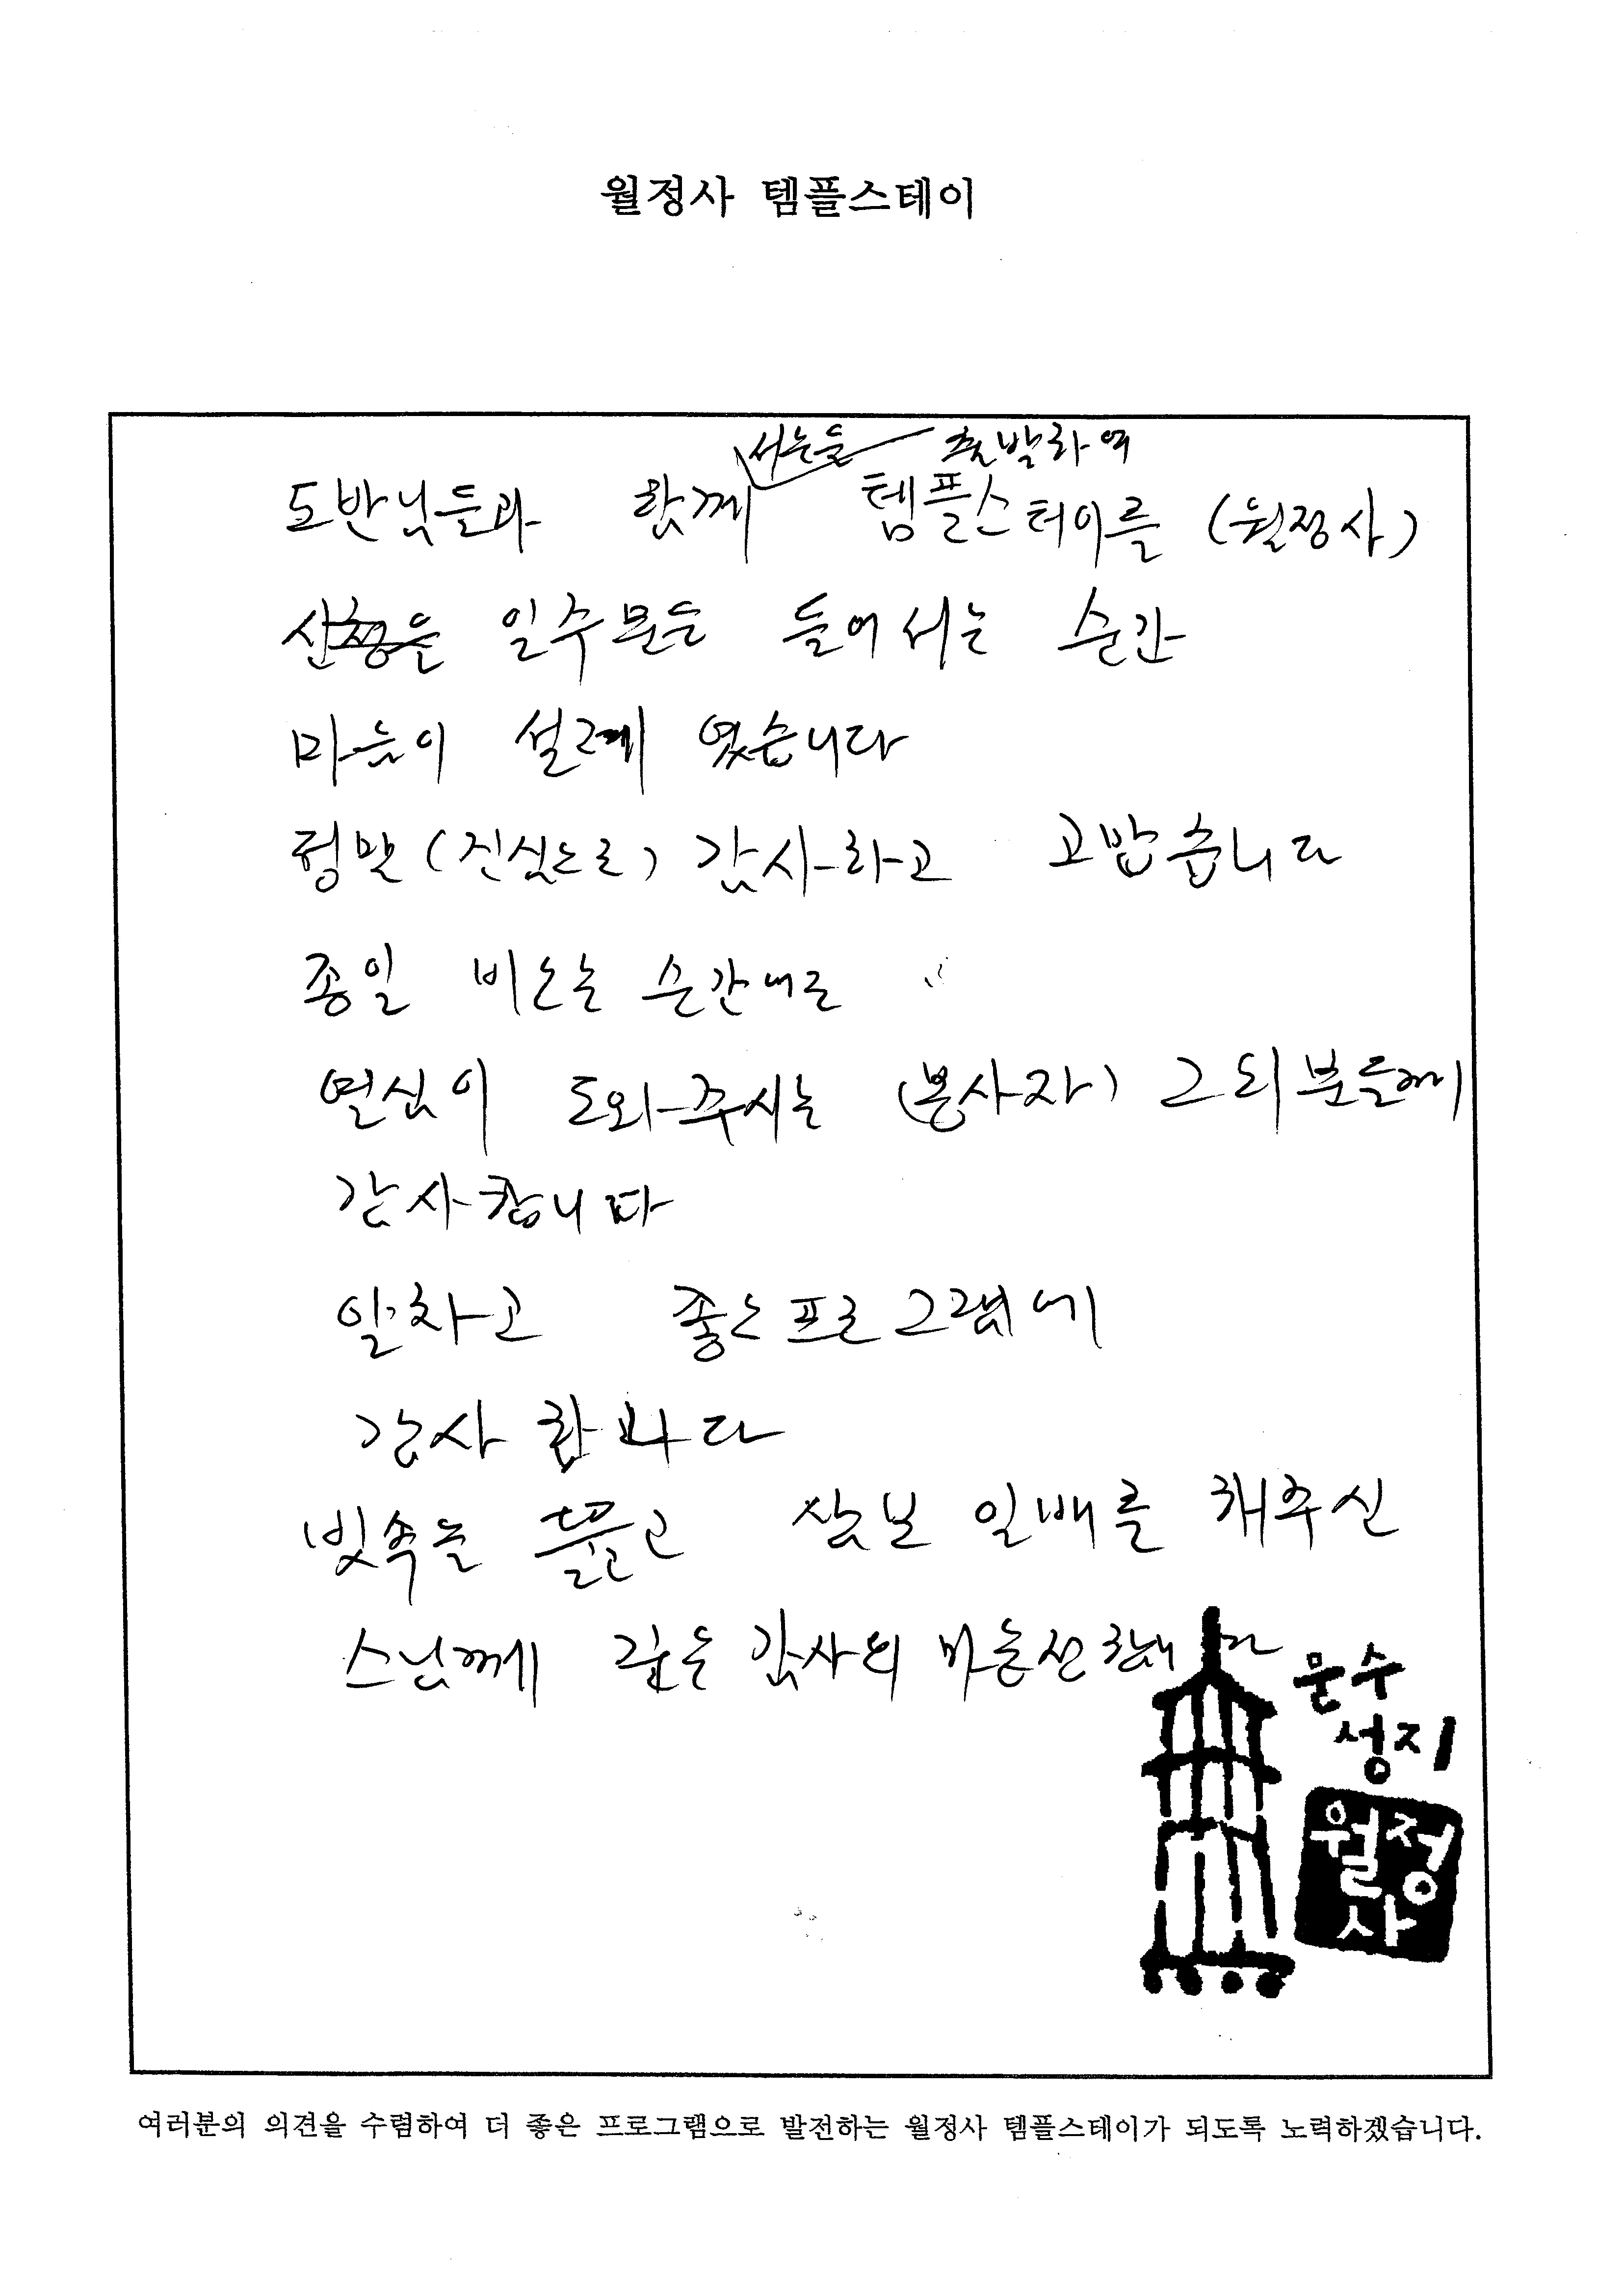 월정사 템플스테이
서울을 출발하여
도반님들과 함께 템플스테이를 (월정사)
일주문을 들어서는 순간
마음이 설레 였습니다
정말 (진심으로) 감사하고 고맙습니다
종일 비오는 순간에도
열심이 도와주시는 (봉사자) 그외분들께
감사합니다
알차고 좋은프로그램에
감사 합니다
빗속을 뚫고 삼보 일배를 해주신
스님께 깊은 감사의 마음전합니다
문수
성지
월정
사
여러분의 의견을 수렴하여 더 좋은 프로그램으로 발전하는 월정사 템플스테이가 되도록 노력하겠습니다.